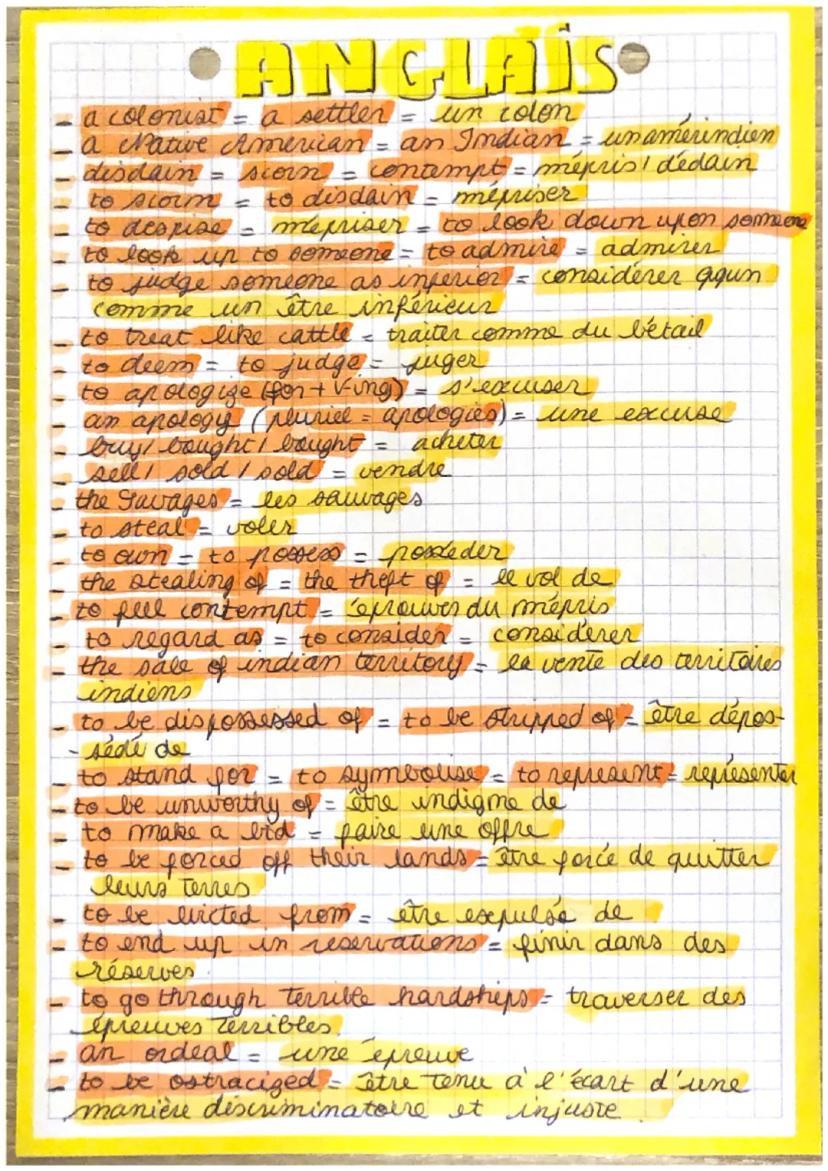 ANGLAIS
- a colonist = a settler = un colon
- a Native American = an Indian = un amérindien
- disdain = scorn = contempt = mépris / dédain
- to scorn = to disdain = mépriser
- to despise = mépriser = to look down upon someone
- to look up to someone = to admire = admirer
- to judge someone as inferior = considérer qqun
comme un être inférieur
- to treat like cattle = traiter comme du bétail
- to deem = to judge = juger
- to apologize (for + V-ing) = s'excuser
- an apology (pluriel = apologies) = une excuse
- buy / bought / bought = acheter
- sell / sold / sold = vendre
- the Savages = les sauvages
- to steal = voler
- to own = to possess = posséder
- the stealing of = the theft of = le vol de
- to feel contempt = éprouver du mépris
- to regard as = to consider = considérer
- the sale of indian territory = la vente des territoires
indiens
- to be dispossessed of = to be stripped of = être dépos-
- sédé de
- to stand for = to symbolise = to represent = représenter
- to be unworthy of = être indigme de
- to make a bid = faire une offre
- to be forced off their lands = être forcé de quitter
leurs terres
- to be evicted from = être expulsé de
- to end up in reservations = finir dans des
réserves
- to go through terrible hardships = traverser des
épreuves terribles
- an ordeal = une épreuve
- to be ostracized = être tenu à l'écart d'une
manière discriminatoire et injuste